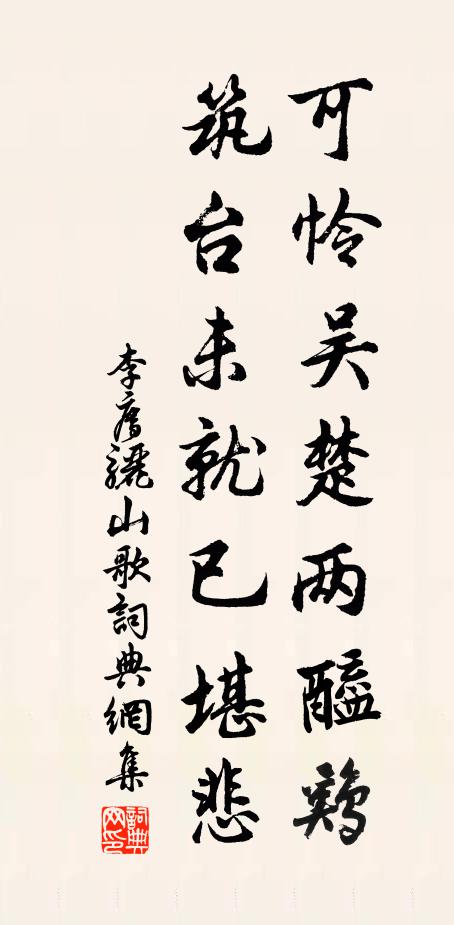 可怜吴楚两醯鸡
筑台未就已堪悲
李廌骊山歌詞典網集
詞典网印